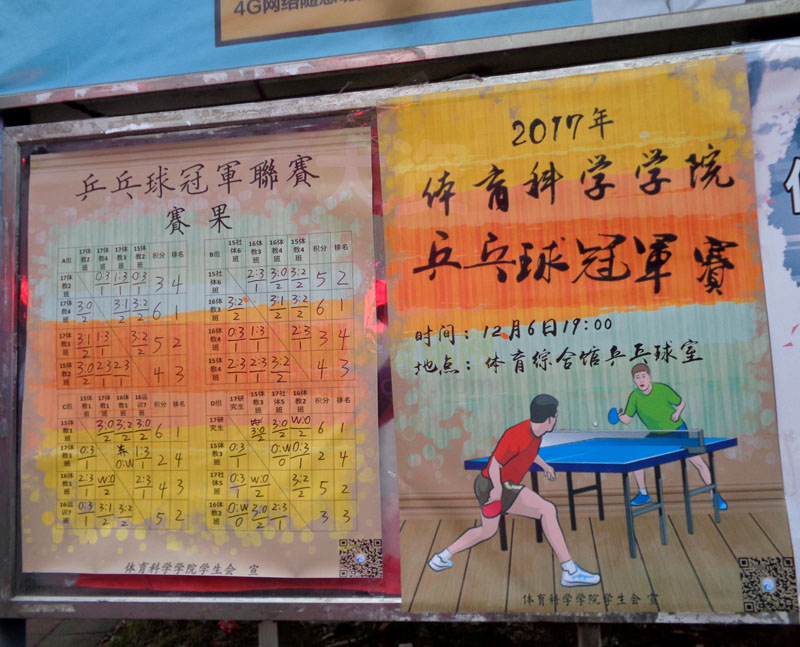 4G网络随意
乒乓球冠軍聯賽
賽果
A组 17体教2班 17体教4班 17体教3班 15体教2班 积分 排名
17体教2班 0:3/1 1:3/1 0:3/1 3 4
17体教4班 3:0/2 3:1/2 3:2/2 6 1
17体教3班 3:1/2 1:3/1 3:2/2 5 2
15体教2班 3:0/2 2:3/1 2:3/1 4 3
B组 15社体6班 16体教3班 16体教4班 15体教4班 积分 排名
15社体6班 2:3/1 3:0/2 3:2/2 5 2
16体教3班 3:2/2 3:1/2 3:2/2 6 1
16体教4班 0:3/1 1:3/1 2:3/1 3 4
15体教4班 2:3/1 2:3/1 3:2/2 4 3
C组 15体教1班 17体教1班 16体教1班 16运训7班 积分 排名
15体教1班 3:0/2 3:2/2 3:0/2 6 1
17体教1班 0:3/1 0:W 1:3/1 2 4
16体教1班 2:3/1 W:0/2 2:3/1 4 3
16运训7班 0:3/1 3:1/2 3:2/2 5 2
D组 17研究生 15体教3班 17社体5班 16体教2班 积分 排名
17研究生 3:0/2 3:0/2 W:0/2 6 1
15体教3班 0:3/1 0:W/0 0:3/1 2 4
17社体5班 0:3/1 W:0/2 3:2/2 5 2
16体教2班 0:W/0 3:0/2 2:3/1 3 3
体育科学学院学生会 宣
2017年
体育科学学院
乒乓球冠軍賽
时间：12月6日19:00
地点：体育综合馆乒乓球室
体育科学学院学生会 宣